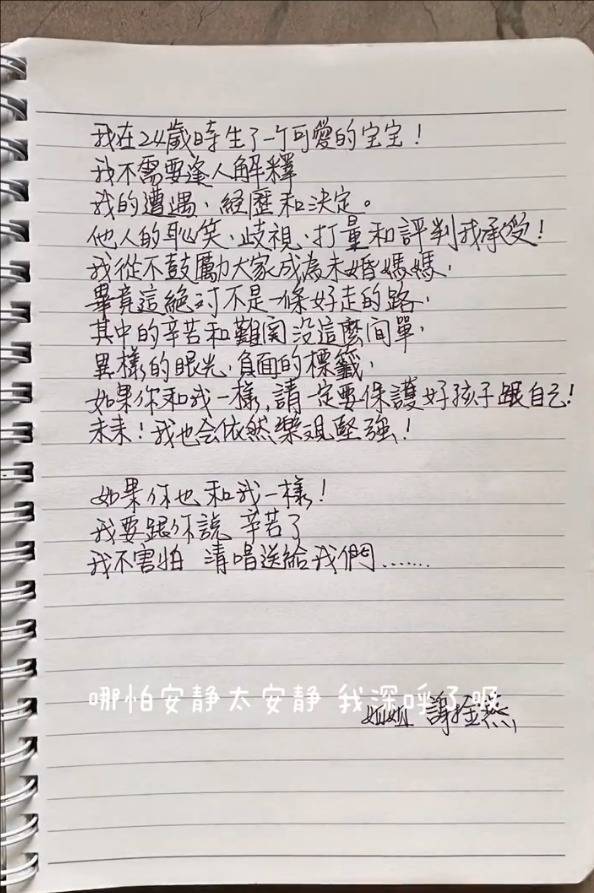 我在24歲時生了一个可愛的宝宝！
我不需要逢人解釋
我的遭遇，經歷和決定。
他人的恥笑、歧視、打量和評判我承受！
我從不鼓勵大家成為未婚媽媽，
畢竟這絕対不是一條好走的路，
其中的辛苦和難関没這麼间單，
異樣的眼光，負面的標籤，
如果你和我一樣，請一定要保護好孩子跟自己！
未来！我也会依然樂观堅強！
如果你也和我一樣！
我要跟你說 辛苦了
我不害怕 清唱送給我們……
哪怕安静太安静 我深呼了吸
姐姐 謝